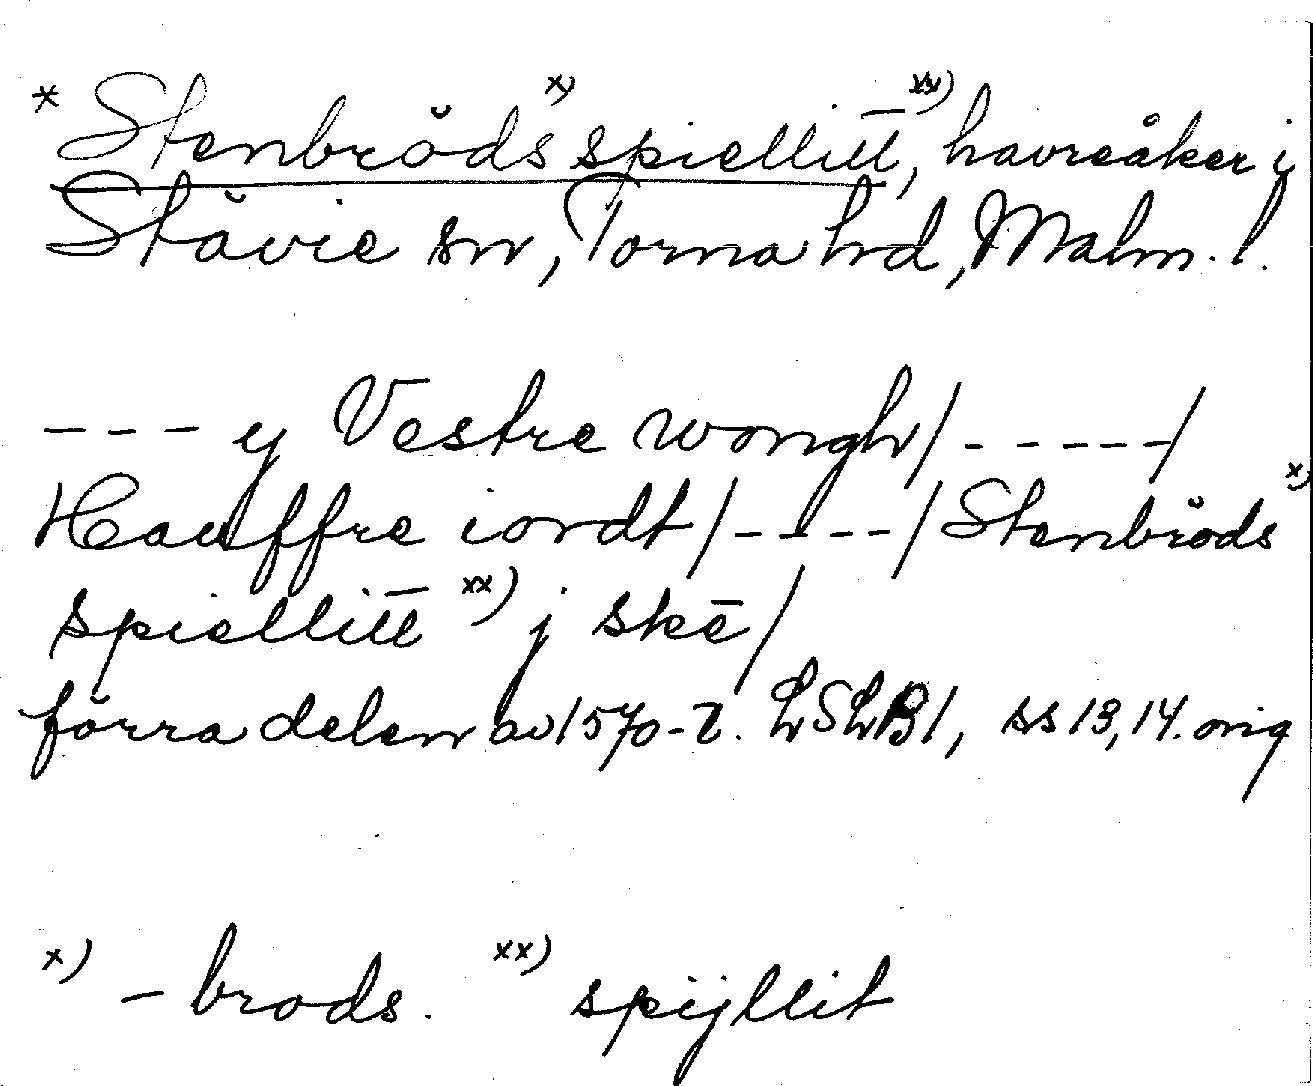 * Stenbröds x) spiellitt̅ xx), havreåker i
Stävie sn, Torna hd, Malm. l.
--- y Vestre wongh/-----/
Hauffre iordt/----/Stenbröds x)
spiellitt̅ xx) j skē/
förra delen av 1570-t. LSLB1, ss 13, 14. orig
x) -brods. xx) spijllit